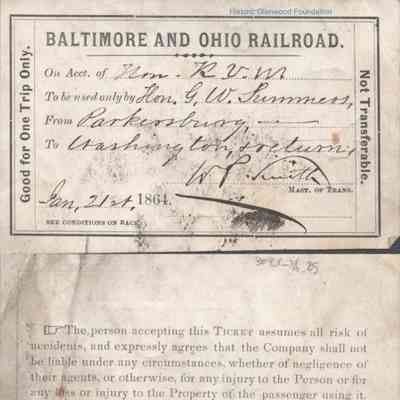 Historic Glenwood Foundation
Good for One Trip Only.
BALTIMORE AND OHIO RAILROAD.
On Acct. of Hon. R V M
To be used only by Hon. G. W. Summers,
From Parkersburg,
To Washington, & return,
W P. Smith
MAST. OF TRANS.
Jan, 21st, 1864.
SEE CONDITIONS ON BACK
Not Transferable.
The person accepting this TICKET assumes all risk of
accidents, and expressly agrees that the Company shall not
be liable under any circumstances, whether of negligence of
their agents, or otherwise, for any injury to the Person or for
any loss or injury to the Property of the passenger using it.